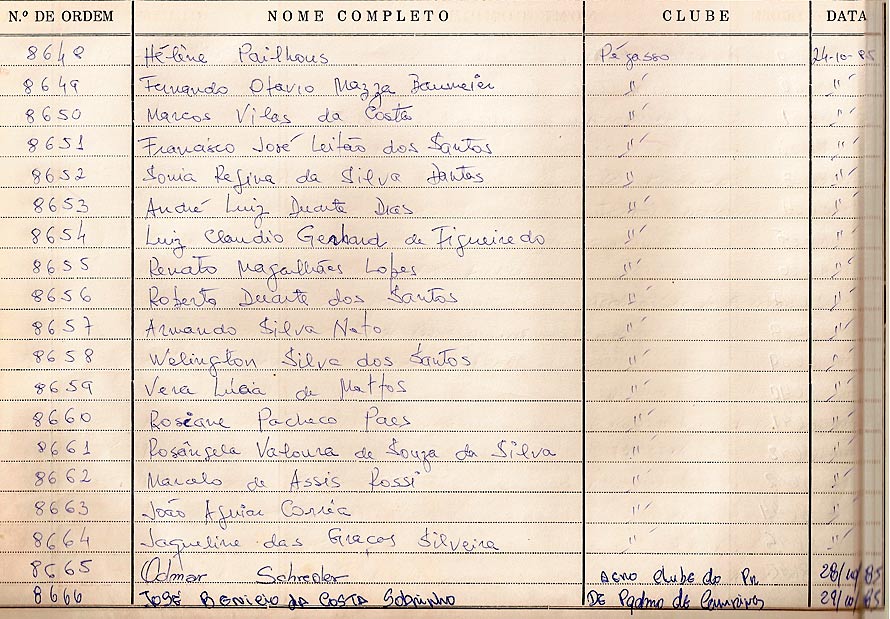 N.º DE ORDEM NOME COMPLETO CLUBE DATA
8648 Hélène Pailhous Pégasso 24-10-85
8649 Fernando Otavio Mazza Baumeier " "
8650 Marcos Vilas da Costa " "
8651 Francisco José Leitão dos Santos " "
8652 Sonia Regina da Silva Dantas " "
8653 André Luiz Duarte Dias " "
8654 Luiz Claudio Gerhard de Figueiredo " "
8655 Renato Magalhães Lopes " "
8656 Roberto Duarte dos Santos " "
8657 Armando Silva Neto " "
8658 Welington Silva dos Santos " "
8659 Vera Lúcia de Mattos " "
8660 Roseane Pacheco Paes " "
8661 Rosângela Valoura de Souza da Silva " "
8662 Marcelo de Assis Rossi " "
8663 João Aguiar Corrêa " "
8664 Jaqueline das Graças Silveira " "
8665 Odmar Schreder Aero Clube do Pr 28/10/85
8666 JOSÉ BENICIO DA COSTA SOBRINHO DE Pqdmo de Campinas 29/10/85